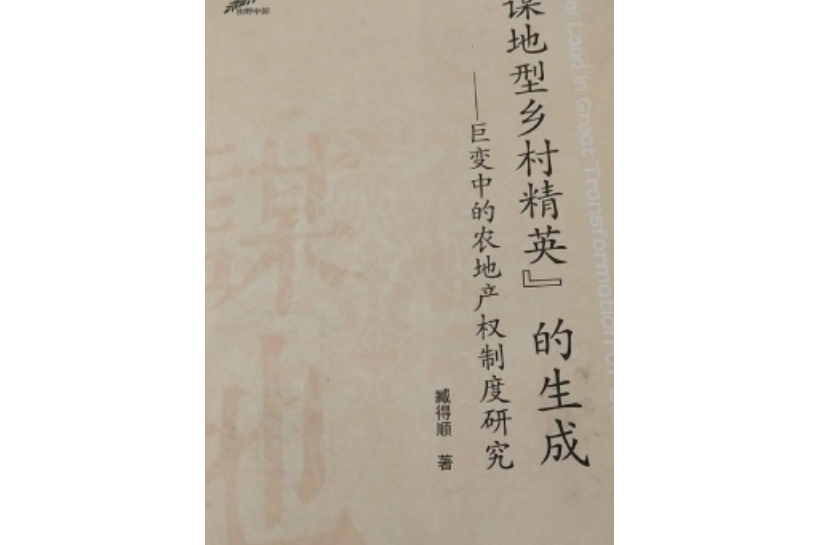 田野中国
谋地型乡村精英』的生成
——巨变中的农地产权制度研究
臧得顺 著
Land in Great Transformation of
謀地